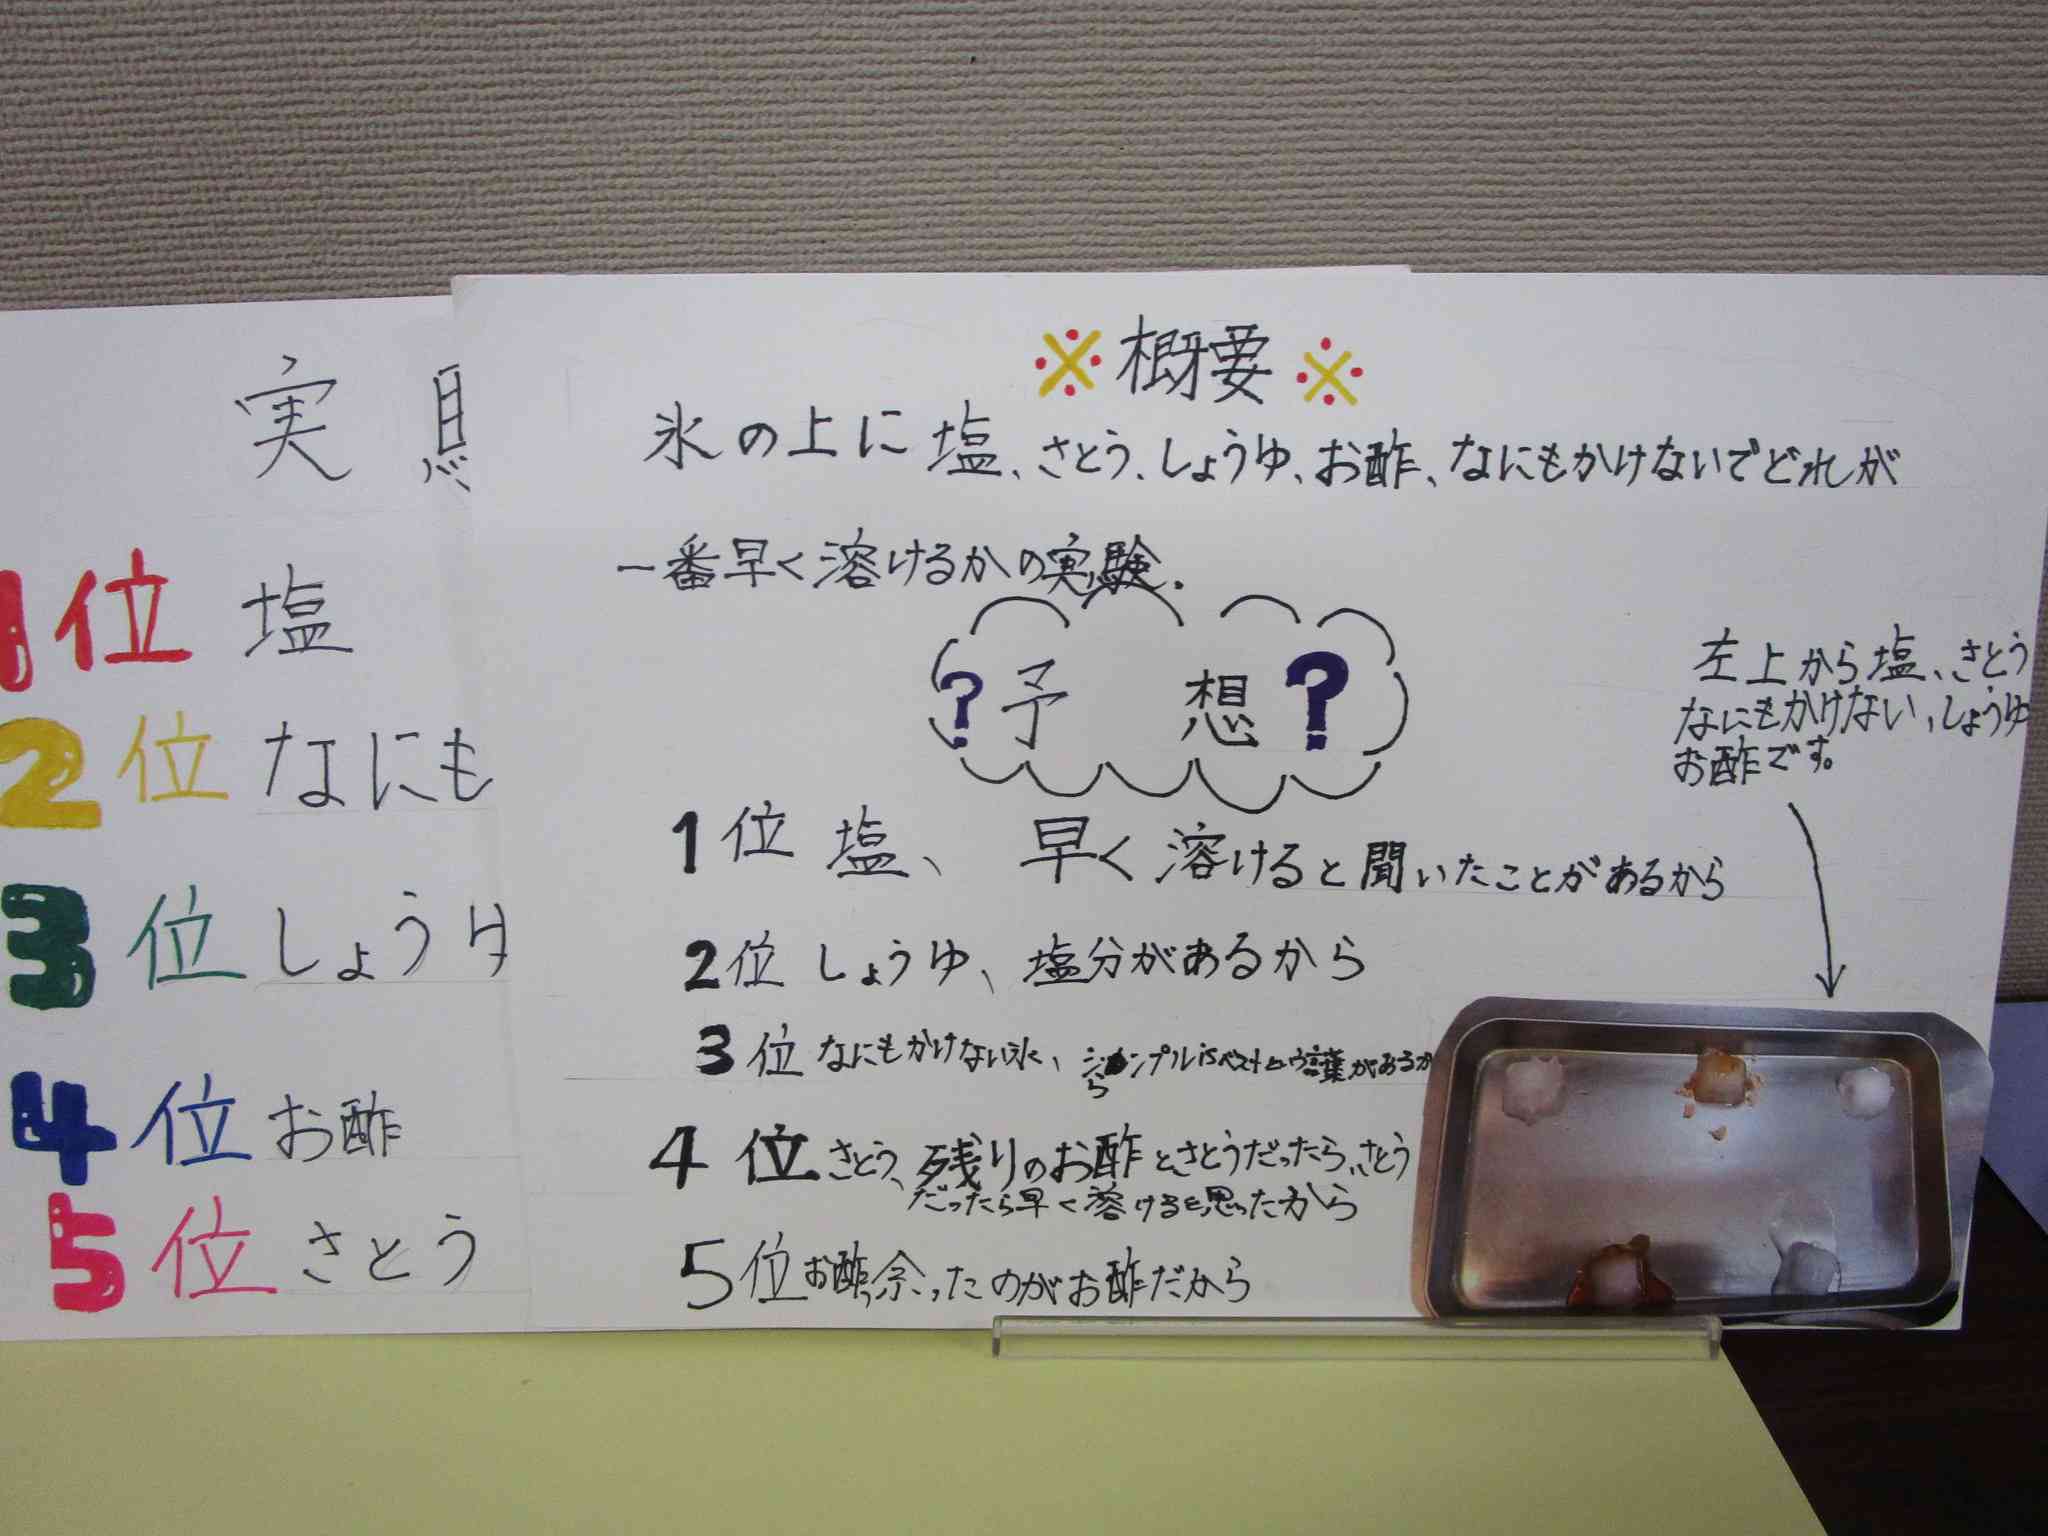 実
1位 塩
2位 なにも
3位 しょうゆ
4位 お酢
5位 さとう
※概要※
氷の上に塩、さとう、しょうゆ、お酢、なにもかけないでどれが
一番早く溶けるかの実験.
?予想?
1位 塩、早く溶けると聞いたことがあるから
2位 しょうゆ、塩分があるから
3位 なにもかけない氷、シンプルisベストという言葉があるか
ら
4位 さとう、残りのお酢とさとうだったら、さとう
だったら早く溶けると思ったから
5位 お酢、余ったのがお酢だから
左上から塩、さとう
なにもかけない、しょうゆ
お酢です。